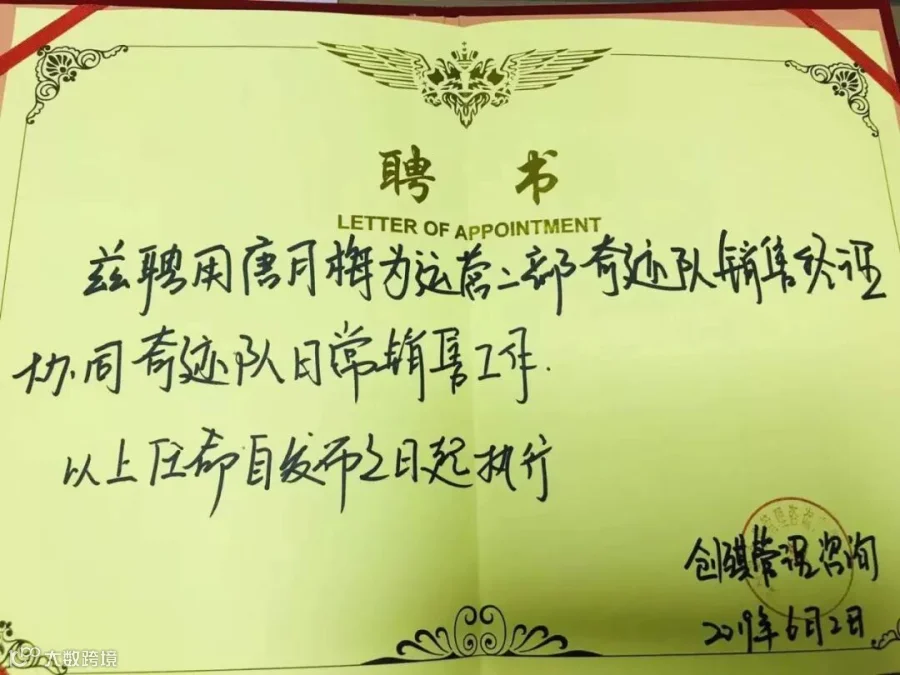 聘 书
LETTER OF APPOINTMENT
兹聘用唐月梅为运营二部奇迹队销售经理
协同奇迹队日常销售工作.
以上任命自发布之日起执行
创骐管理咨询
2019年6月2日
大数跨境